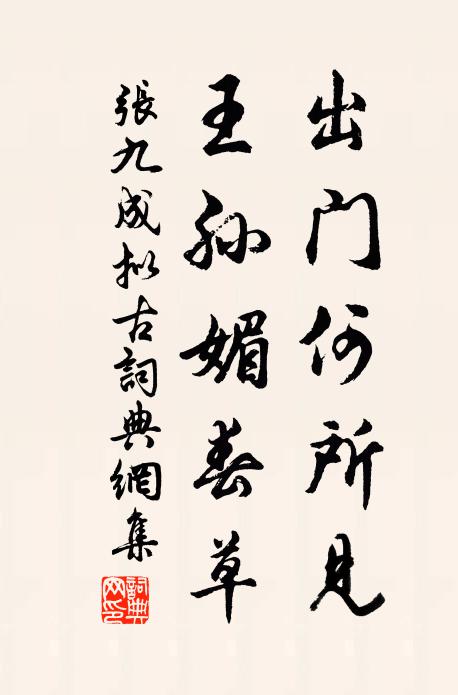 出门何所见
王孙媚春草
張九成拟古詞典網集
詞典
网印